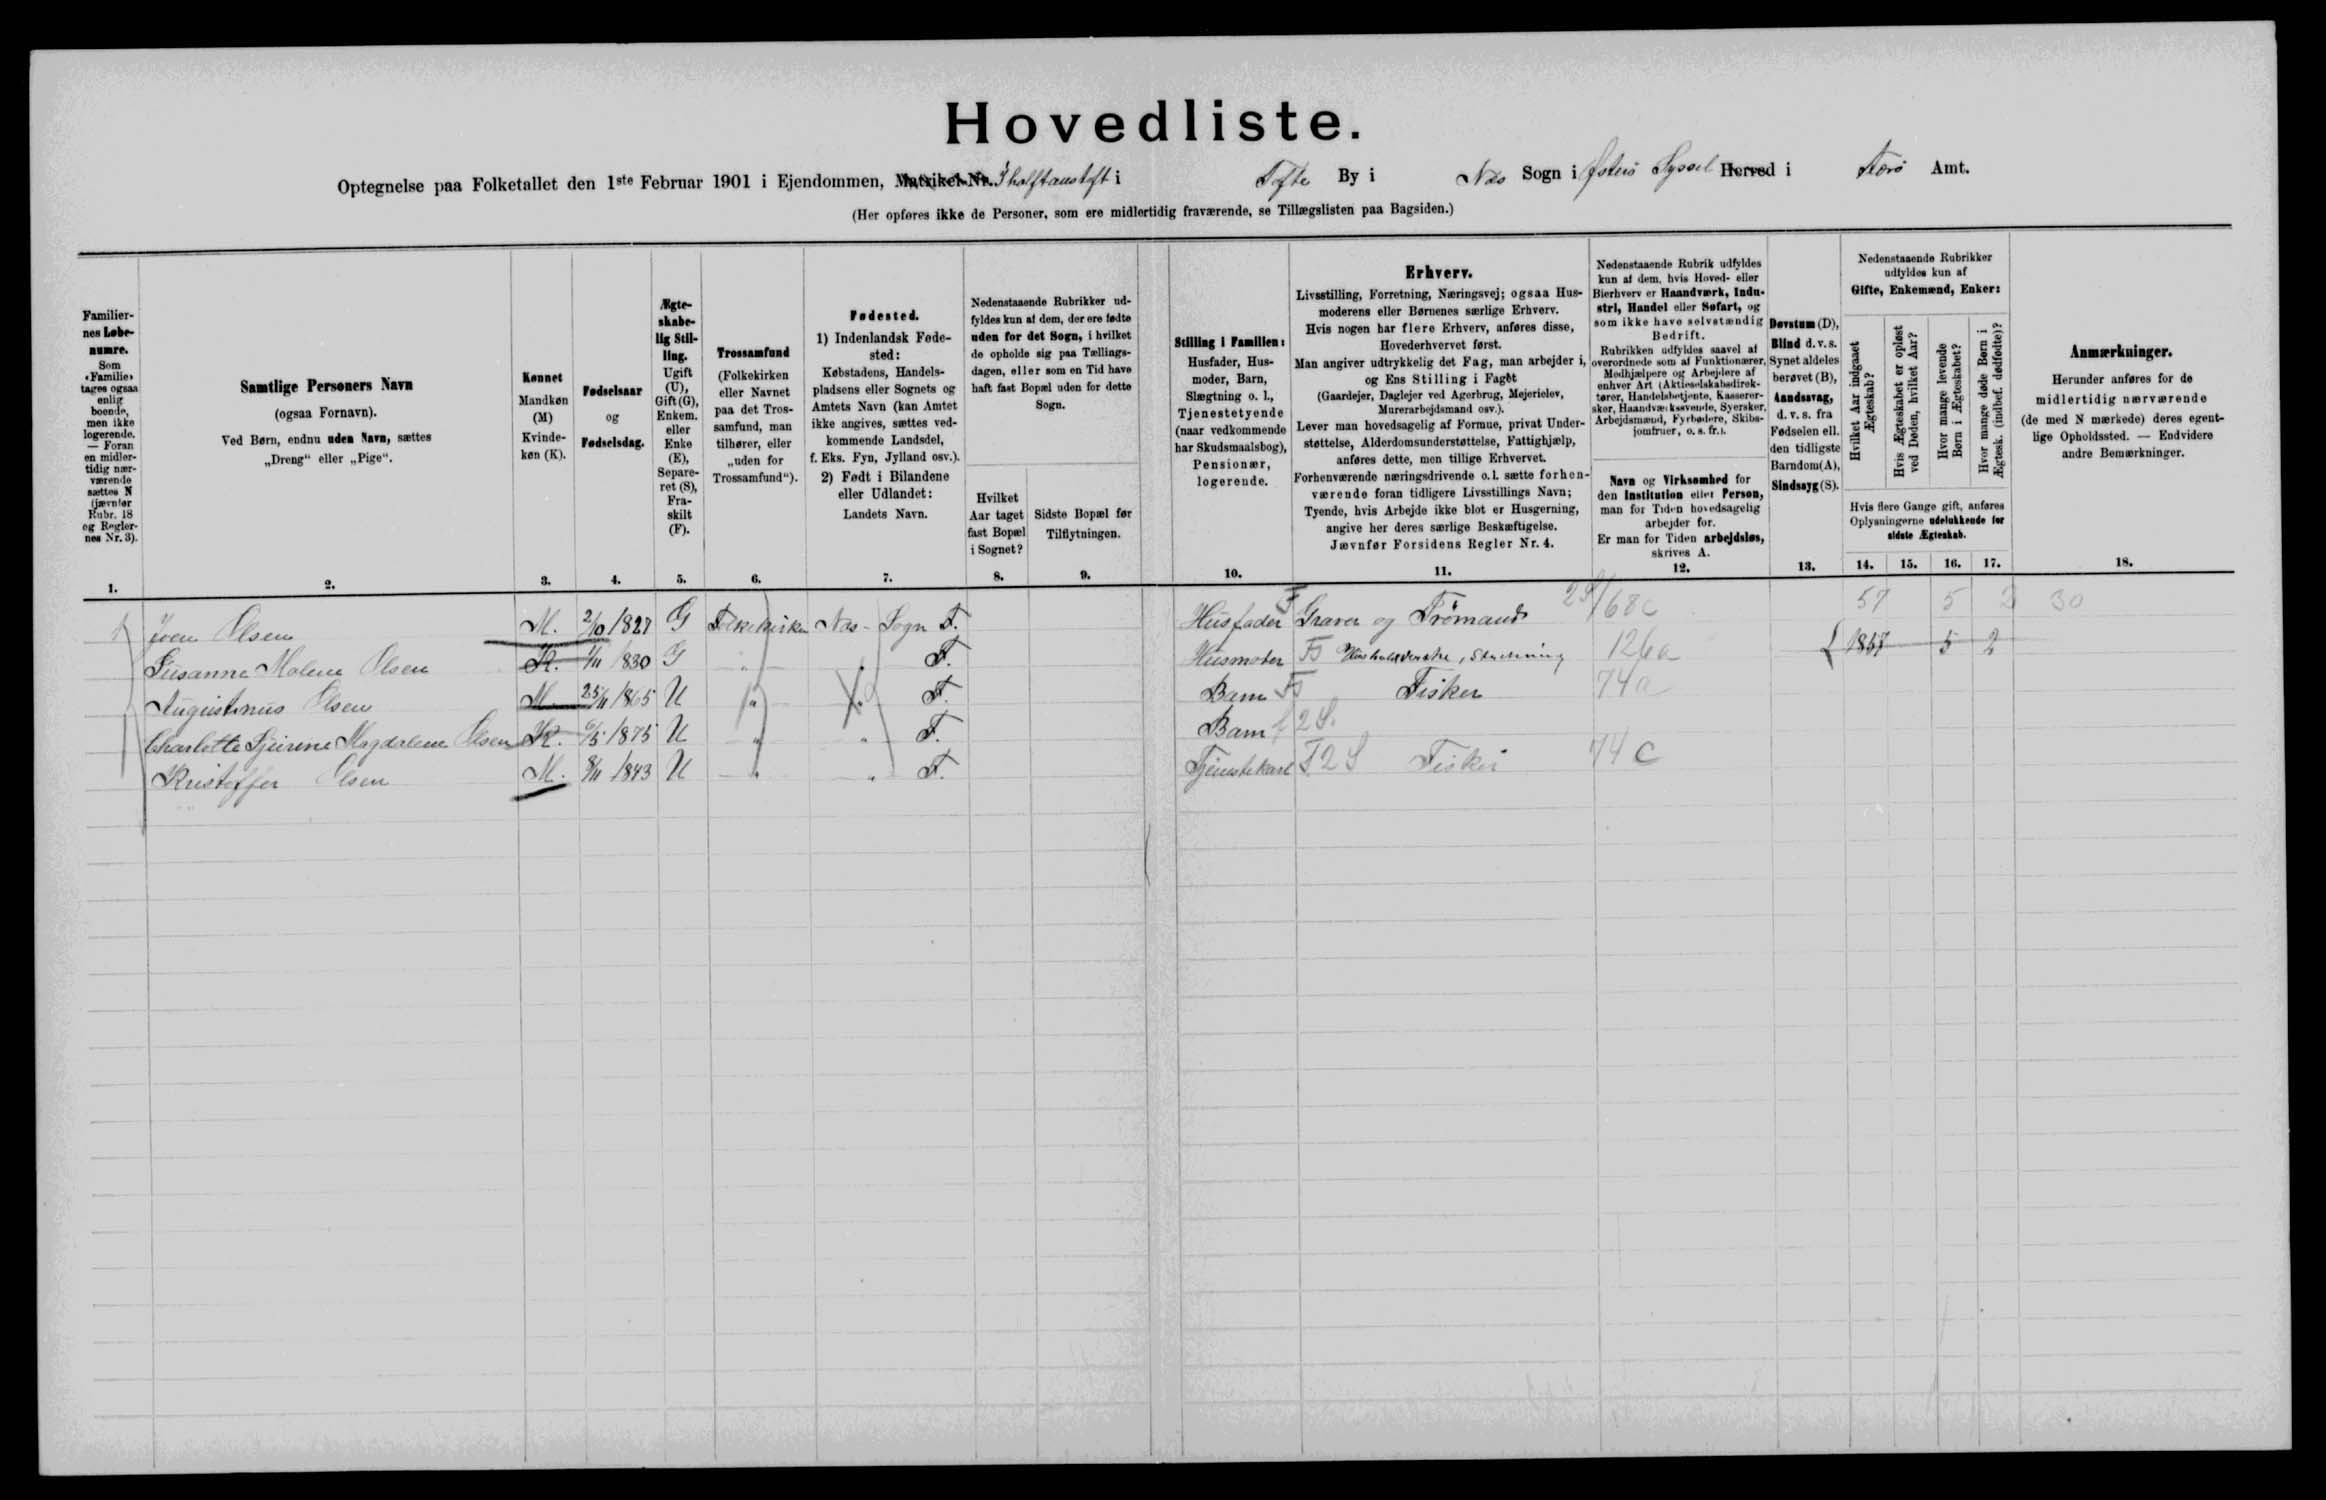 Hovedliste.
Optegnelse paa Folketallet den 1ste Februar 1901 i Ejendommen, Matrikel-Nr. i Tofte By i Næs Sogn i Østerø Syssel Herred i Færø Amt.
(Her opføres ikke de Personer, som ere midlertidig fraværende, se Tillægslisten paa Bagsiden.)
Familier-
nes Løbe-
numre.
Som
«Familie»
tages ogsaa
enlig
boende,
men ikke
logerende.
— Foran
en midler-
tidig nær-
værende
sættes N
(jævnfør
Rubr. 18
og Regler-
nes Nr. 3).
1.
Samtlige Personers Navn
(ogsaa Fornavn).
Ved Børn, endnu uden Navn, sættes
„Dreng“ eller „Pige“.
2.
Kønnet
Mandkøn
(M)
Kvinde-
køn (K).
3.
Fødselsaar
og
Fødselsdag.
4.
Ægte-
skabe-
lig Stil-
ling.
Ugift
(U),
Gift (G),
Enkem.
eller
Enke
(E),
Separe-
ret (S),
Fra-
skilt
(F).
5.
Trossamfund
(Folkekirken
eller Navnet
paa det Tros-
samfund, man
tilhører, eller
„uden for
Trossamfund“).
6.
Fødested.
1) Indenlandsk Føde-
sted:
Købstadens, Handels-
pladsens eller Sognets og
Amtets Navn (kan Amtet
ikke angives, sættes ved-
kommende Landsdel,
f. Eks. Fyn, Jylland osv.).
2) Født i Bilandene
eller Udlandet:
Landets Navn.
7.
Nedenstaaende Rubrikker ud-
fyldes kun af dem, der ere fødte
uden for det Sogn, i hvilket
de opholde sig paa Tællings-
dagen, eller som en Tid have
haft fast Bopæl uden for dette
Sogn.
Hvilket
Aar taget
fast Bopæl
i Sognet?
8.
Sidste Bopæl før
Tilflytningen.
9.
Stilling i Familien:
Husfader, Hus-
moder, Barn,
Slægtning o. l.,
Tjenestetyende
(naar vedkommende
har Skudsmaalsbog),
Pensionær,
logerende.
10.
Erhverv.
Livsstilling, Forretning, Næringsvej; ogsaa Hus-
moderens eller Børnenes særlige Erhverv.
Hvis nogen har flere Erhverv, anføres disse,
Hovederhvervet først.
Man angiver udtrykkelig det Fag, man arbejder i,
og Ens Stilling i Faget
(Gaardejer, Daglejer ved Agerbrug, Mejerielev,
Murerarbejdsmand osv.).
Lever man hovedsagelig af Formue, privat Under-
støttelse, Alderdomsunderstøttelse, Fattighjælp,
anføres dette, men tillige Erhvervet.
Forhenværende næringsdrivende o. l. sætte forhen-
værende foran tidligere Livsstillings Navn;
Tyende, hvis Arbejde ikke blot er Husgerning,
angive her deres særlige Beskæftigelse.
Jævnfør Forsidens Regler Nr. 4.
11.
Nedenstaaende Rubrik udfyldes
kun af dem, hvis Hoved- eller
Bierhverv er Haandværk, Indu-
stri, Handel eller Søfart, og
som ikke have selvstændig
Bedrift.
Rubrikken udfyldes saavel af
overordnede som af Funktionærer,
Medhjælpere og Arbejdere af
enhver Art (Aktieselskabsdirek-
tører, Handelsbetjente, Kasserer-
sker, Haandværkssvende, Syersker,
Arbejdsmænd, Fyrbødere, Skibs-
jomfruer, o. s. fr.).
Navn og Virksomhed for
den Institution eller Person,
man for Tiden hovedsagelig
arbejder for.
Er man for Tiden arbejdsløs,
skrives A.
12.
Døvstum (D),
Blind d. v. s.
Synet aldeles
berøvet (B),
Aandssvag,
d. v. s. fra
Fødselen ell.
den tidligste
Barndom (A),
Sindssyg (S).
13.
Nedenstaaende Rubrikker
udfyldes kun af
Gifte, Enkemænd, Enker:
Hvilket Aar indgaaet
Ægteskab?
Hvis Ægteskabet er opløst
ved Døden, hvilket Aar?
Hvor mange levende
Børn i Ægteskabet?
Hvor mange døde Børn i
Ægtesk. (indbef. dødfødte)?
Hvis flere Gange gift, anføres
Oplysningerne udelukkende for
sidste Ægteskab.
14. 15. 16. 17.
Anmærkninger.
Herunder anføres for de
midlertidig nærværende
(de med N mærkede) deres egent-
lige Opholdssted. — Endvidere
andre Bemærkninger.
18.
Joen Olsen M. 2/10 1827 G Folkekirken Næs Sogn F. Husfader Graver og 68c 57 5 2 30
Susanne Malene Olsen K. 1/11 1830 G „ „ F. Husmoder 126a 1857 5 2
Augustinus Olsen M. 25/11 1865 U „ „ F. Barn Fisker 74a
Charlotte Magdalene Olsen K. 6/5 1875 U „ „ F. Barn 2S.
Kristoffer Olsen M. 8/11 1843 U „ „ F. Tjenestekarl F2S Fisker 74c